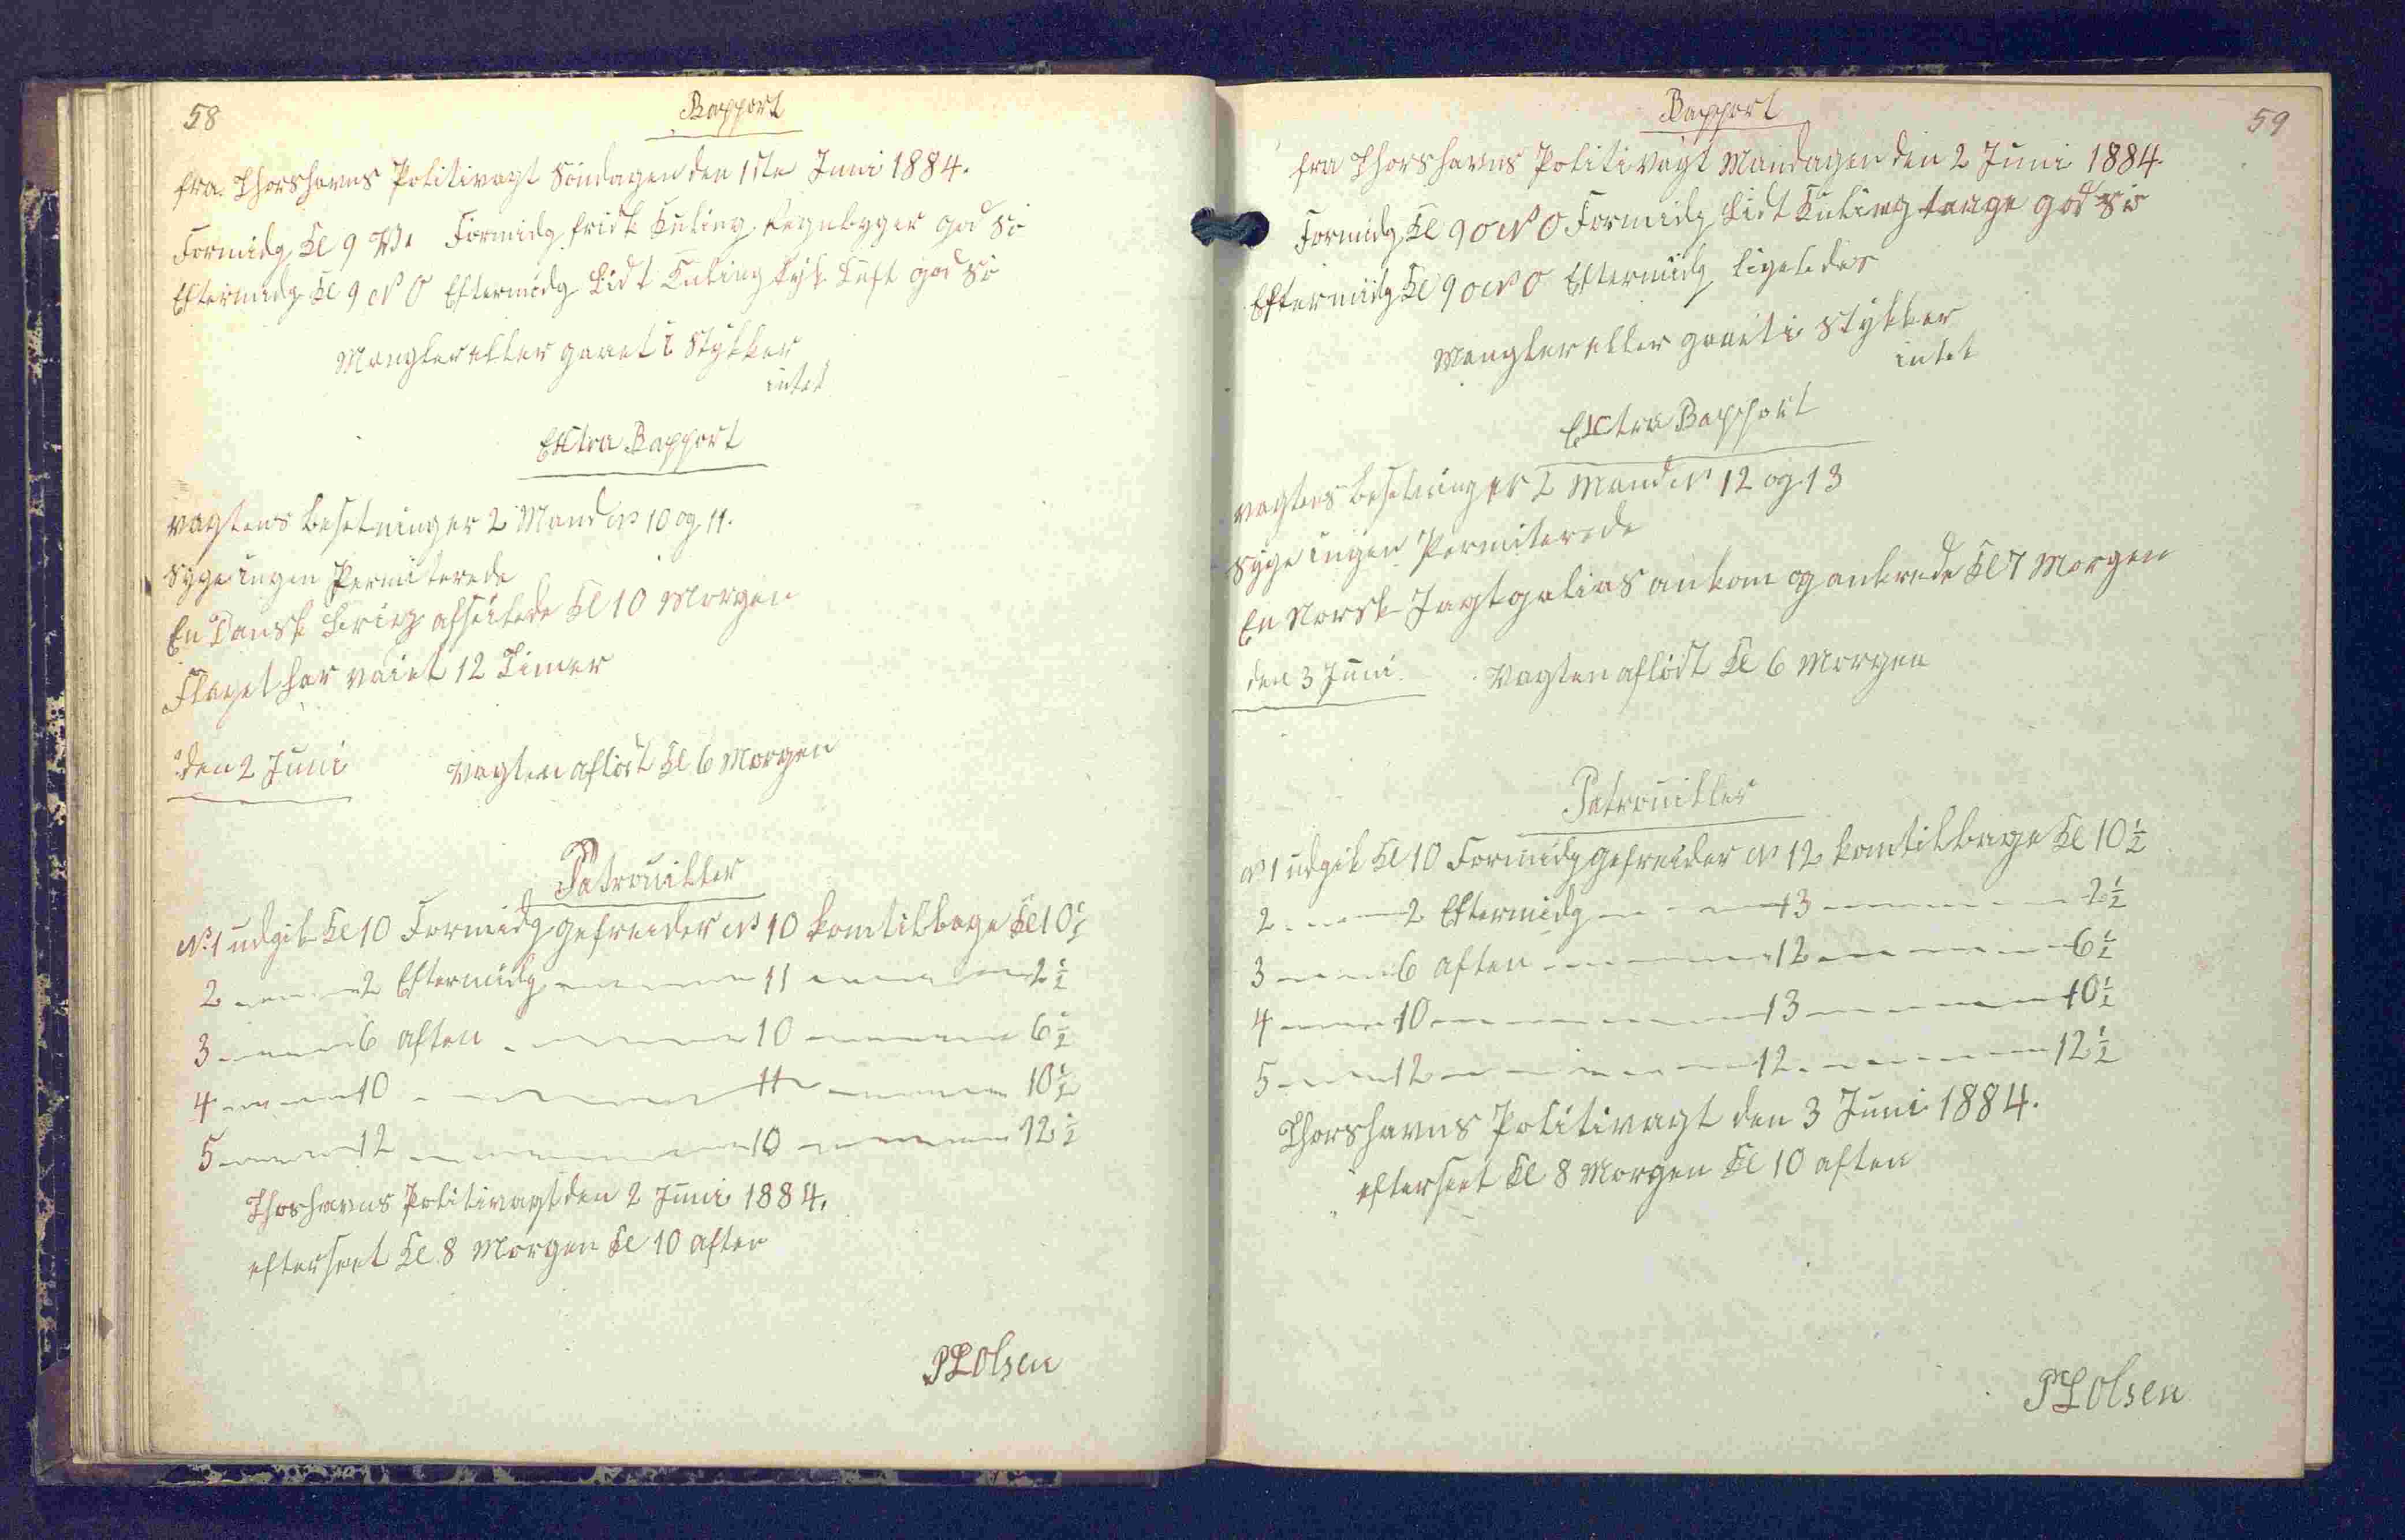 58
Rapport
fra Thorshavns Politivagt Söndagen den 1ste Juni 1884.
Formidg Kl 9 V. Formidg frisk Kuling Regnbyger god Sö
Eftermidg Kl 9 NO Eftermidg Lidt Kuling tyk Luft god Sö
Mangler eller gaaet i Stykker
intet
Extra Rapport
Vagtens Besetning er 2 Mand No 10 og 11.
Syge ingen Permiterede
En Dansk Brieg afseilede Kl 10 Morgen
Flaget har vaiet 12 Timer
den 2 Juni Vagten aflöst Kl 6 Morgen
Patrouiller
No 1 udgik Kl 10 Formidg gefreider No 10 kom tilbage Kl 10½
2 — 2 Eftermidg — 11 — 2½
3 — 6 aften — 10 — 6½
4 — 10 — 11 — 10½
5 — 12 — 10 — 12½
Thoshavns Politivagt den 2 Juni 1884.
efterseet Kl 8 Morgen Kl 10 aften
PLOlsen
59
Rapport
fra Thorshavns Politivagt Mandagen den 2 Juni 1884.
Formidg Kl 9 ONO Formidg Lidt Kuling taage god Sö
Eftermidg Kl 9 ONO Eftermidg ligeledes
Mangler eller gaaet i Stykker
intet
Extra Rapport
Vagtens Besetning er 2 Mand No 12 og 13
Syge ingen Permiterede
En Norsk Jagtgalias ankom og ankrede Kl 7 Morgen
den 3 Juni. Vagten aflöst Kl 6 Morgen
Patrouiller
No 1 udgik Kl 10 Formidg gefreider No 12 kom tilbage Kl 10½
2 — 2 Eftermidg — 13 — 2½
3 — 6 aften — 12 — 6½
4 — 10 — 13 — 10½
5 — 12 — 12 — 12½
Thorshavns Politivagt den 3 Juni 1884.
efterseet Kl 8 Morgen Kl 10 aften
PLOlsen